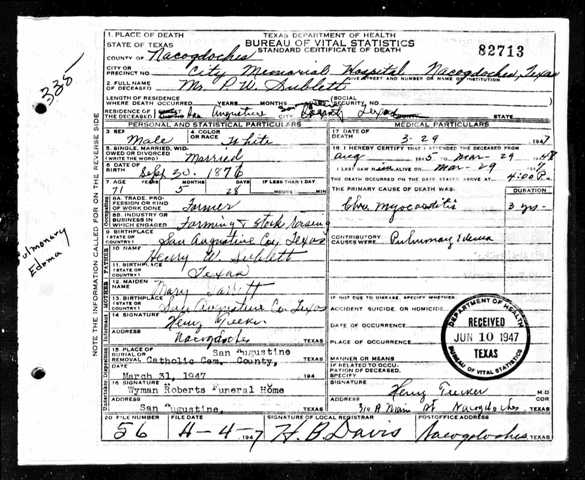 1. PLACE OF DEATH
STATE OF TEXAS
TEXAS DEPARTMENT OF HEALTH
BUREAU OF VITAL STATISTICS
STANDARD CERTIFICATE OF DEATH
82713
COUNTY OF Nacogdoches
CITY OR PRECINCT NO. City Memorial Hospital, Nacogdoches, Texas
GIVE STREET AND NUMBER OR NAME OF INSTITUTION
2. FULL NAME OF DECEASED Mr. P. W. Sublett
LENGTH OF RESIDENCE WHERE DEATH OCCURRED YEARS MONTHS DAYS SOCIAL SECURITY NO.
RESIDENCE OF THE DECEASED San Augustine Texas STATE
PERSONAL AND STATISTICAL PARTICULARS
MEDICAL PARTICULARS
3. SEX Male
4. COLOR OR RACE White
17. DATE OF DEATH 3-29 1947
5. SINGLE, MARRIED, WIDOWED OR DIVORCED (WRITE THE WORD) Married
18. I HEREBY CERTIFY THAT I ATTENDED THE DECEASED FROM
Aug 1945 TO Mar-29
6. DATE OF BIRTH Sept 30. 1876
I LAST SAW him ALIVE ON Mar-29
7. AGE YEARS MONTHS DAYS IF LESS THAN 1 DAY
71 5 28 HOURS MIN
THE DEATH OCCURRED ON THE DATE STATED ABOVE AT 4:00 P.
8A. TRADE, PROFESSION OR KIND OF WORK DONE Farmer
THE PRIMARY CAUSE OF DEATH WAS: DURATION
8B. INDUSTRY OR BUSINESS IN WHICH ENGAGED Farming & Stock raising
Chr. Myocarditis 3 yrs.
9. BIRTHPLACE (STATE OR COUNTRY) San Augustine Co., Texas
CONTRIBUTORY CAUSES WERE: Pulmonary Edema
10. NAME Henry W. Sublett
11. BIRTHPLACE (STATE OR COUNTRY) Texas
12. MAIDEN NAME Mary
13. BIRTHPLACE (STATE OR COUNTRY) San Augustine Co. Texas
IF NOT DUE TO DISEASE, SPECIFY WHETHER:
ACCIDENT SUICIDE, OR HOMICIDE
14. SIGNATURE Henry Tucker
DATE OF OCCURRENCE
ADDRESS Nacogdoches TEXAS
PLACE OF OCCURRENCE
15. PLACE OF BURIAL OR REMOVAL San Augustine
Catholic Cem. County, TEXAS
MANNER OR MEANS
March 31, 1947
IF RELATED TO OCCUPATION OF DECEASED, SPECIFY
16. SIGNATURE Wyman Roberts Funeral Home
SIGNATURE Henry Tucker M.D.
ADDRESS San Augustine, TEXAS
ADDRESS Nacogdoches TEXAS
20. FILE NUMBER FILE DATE SIGNATURE OF LOCAL REGISTRAR POSTOFFICE ADDRESS
56 4-4-7 1947 H. B. Davis Nacogdoches TEXAS
DEPARTMENT OF HEALTH
RECEIVED
JUN 10 1947
TEXAS
BUREAU OF VITAL STATISTICS
NOTE THE INFORMATION CALLED FOR ON THE REVERSE SIDE
Occupation
FATHER
MOTHER
Informant
Undertaker
335
Pulmonary
Edema